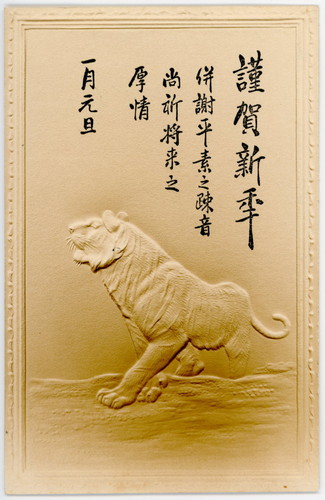 謹賀新年
併謝平素之疎音
尚祈将来之
厚情
一月元旦